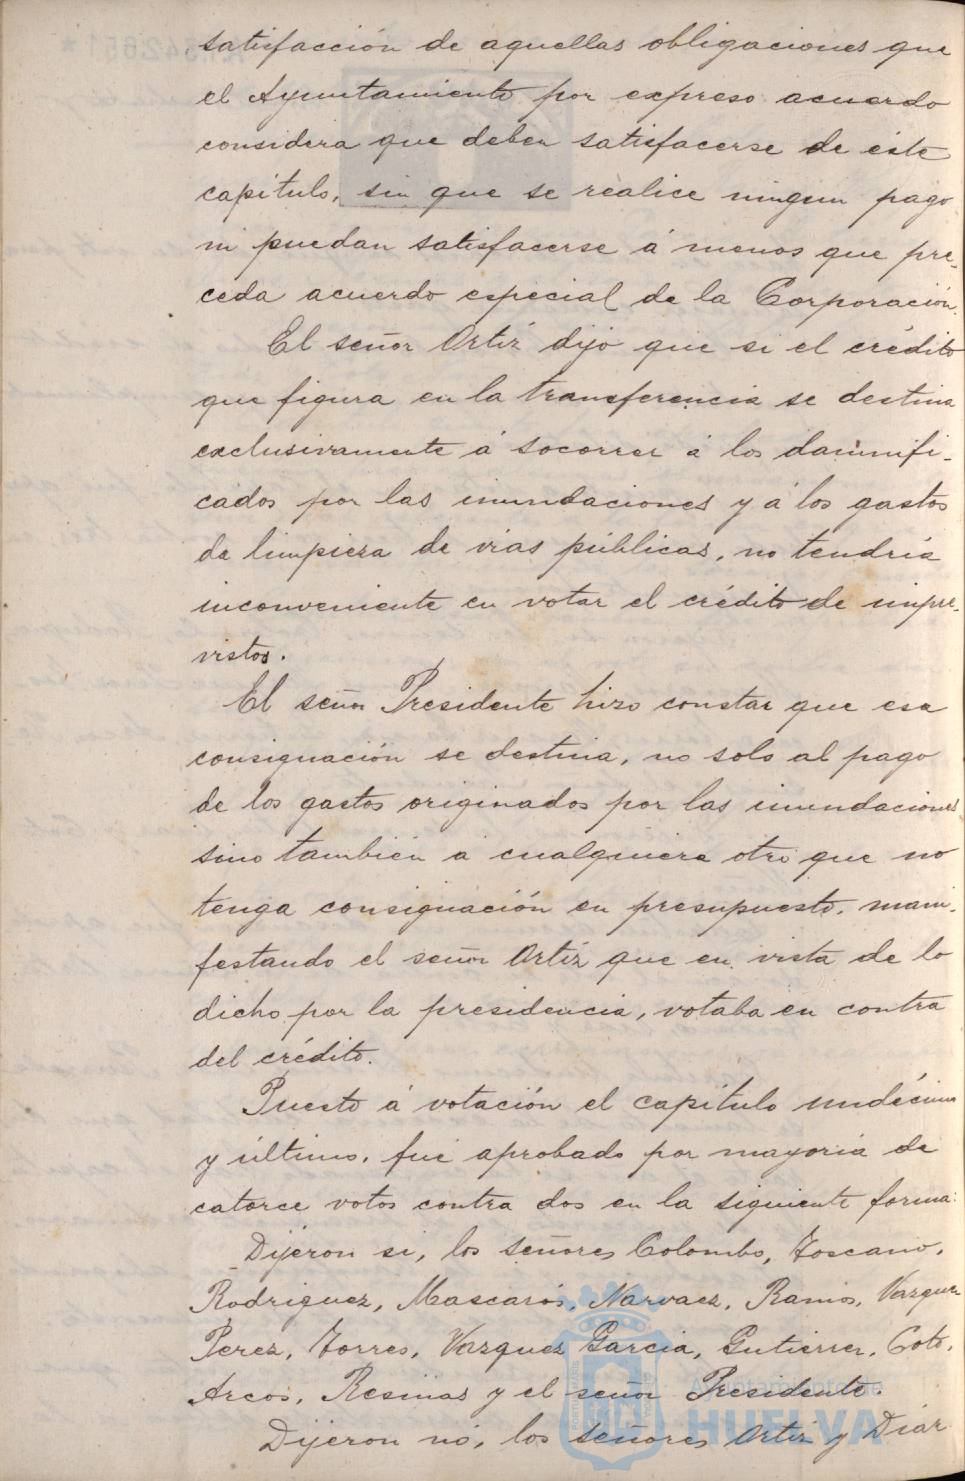 satisfacción de aquellas obligaciones que
el Ayuntamiento por expreso acuerdo
considera que deben satisfacerse de éste
capítulo, sin que se realice ningun pago
ni puedan satisfacerse á menos que pre-
ceda acuerdo especial de la Corporación.
El señor Ortíz dijo que si el crédito
que figura en la transferencia se destina
exclusivamente á socorrer á los damnifi-
cados por las inundaciones y á los gastos
de limpieza de vías públicas, no tendría
inconveniente en votar el crédito de impre-
vistos.
El señor Presidente hizo constar que esa
consignación se destina, no solo al pago
de los gastos originados por las inundaciones
sino también a cualquiera otro que no
tenga consignación en presupuesto, mani-
festando el señor Ortíz que en vista de lo
dicho por la presidencia, votaba en contra
del crédito.
Puesto á votación el capítulo undécimo
y último, fué aprobado por mayoría de
catorce votos contra dos en la siguiente forma:
Dijeron si, los señores Colombo, Toscano,
Rodriguez, Mascarós, Narvaez, Ramos, Vazquez
Perez, Torres, Vazquez Garcia, Gutierrez, Coto,
Arcos, Resinas y el señor Presidente.
Dijeron no, los señores Ortíz y Díaz
Ayuntamiento de
HUELVA